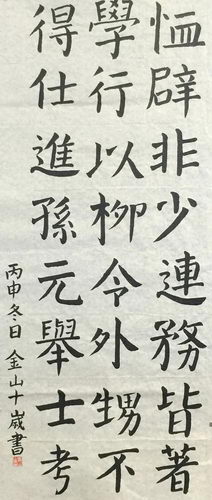 恤辟非少連務皆著
學行以柳令外甥不
得仕進孫元舉士考
丙申冬日 金山十歲書